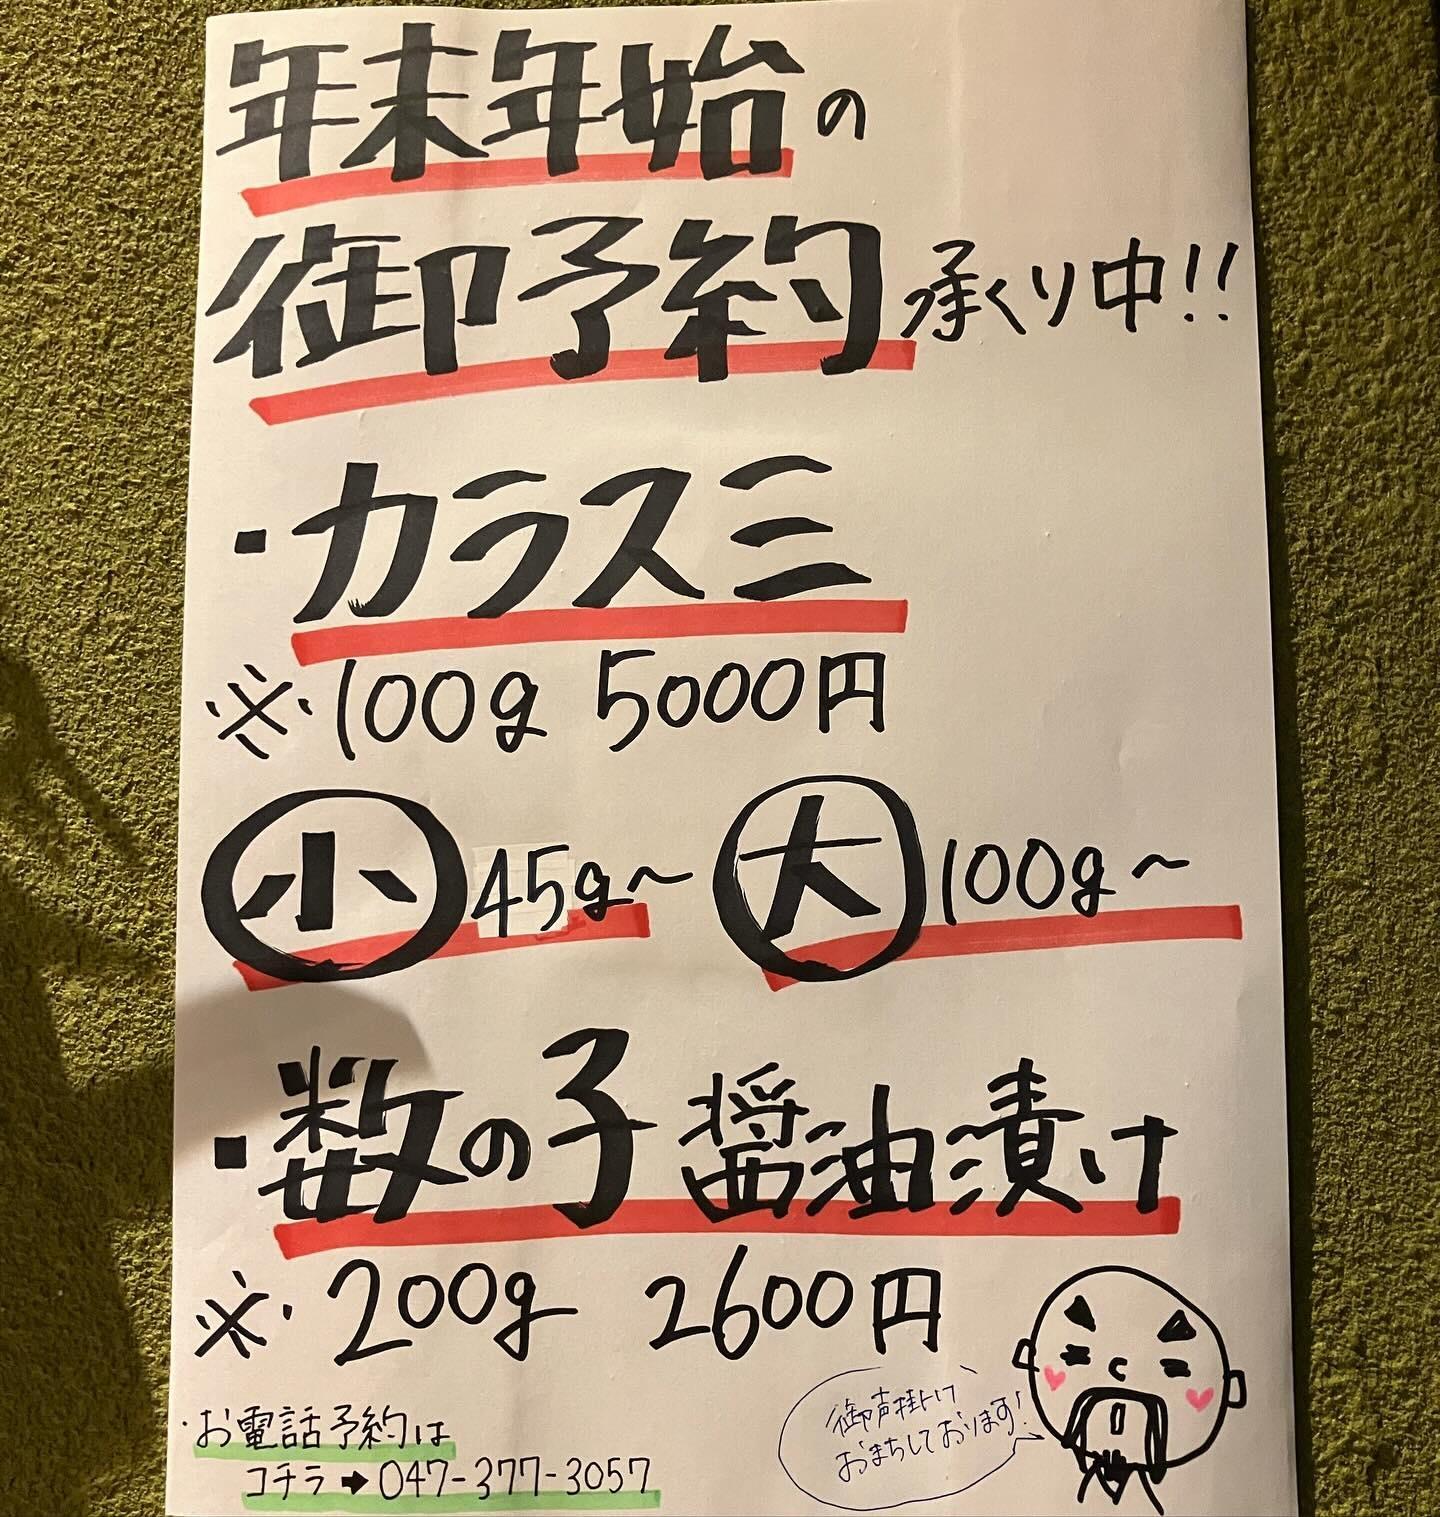 年末年始の
御予約承くり中!!
・カラスミ
※100g 5000円
小 45g～ 大 100g～
・数の子 醤油漬け
※200g 2600円
・お電話予約は
コチラ➡047-377-3057
御声掛け
おまちしております!